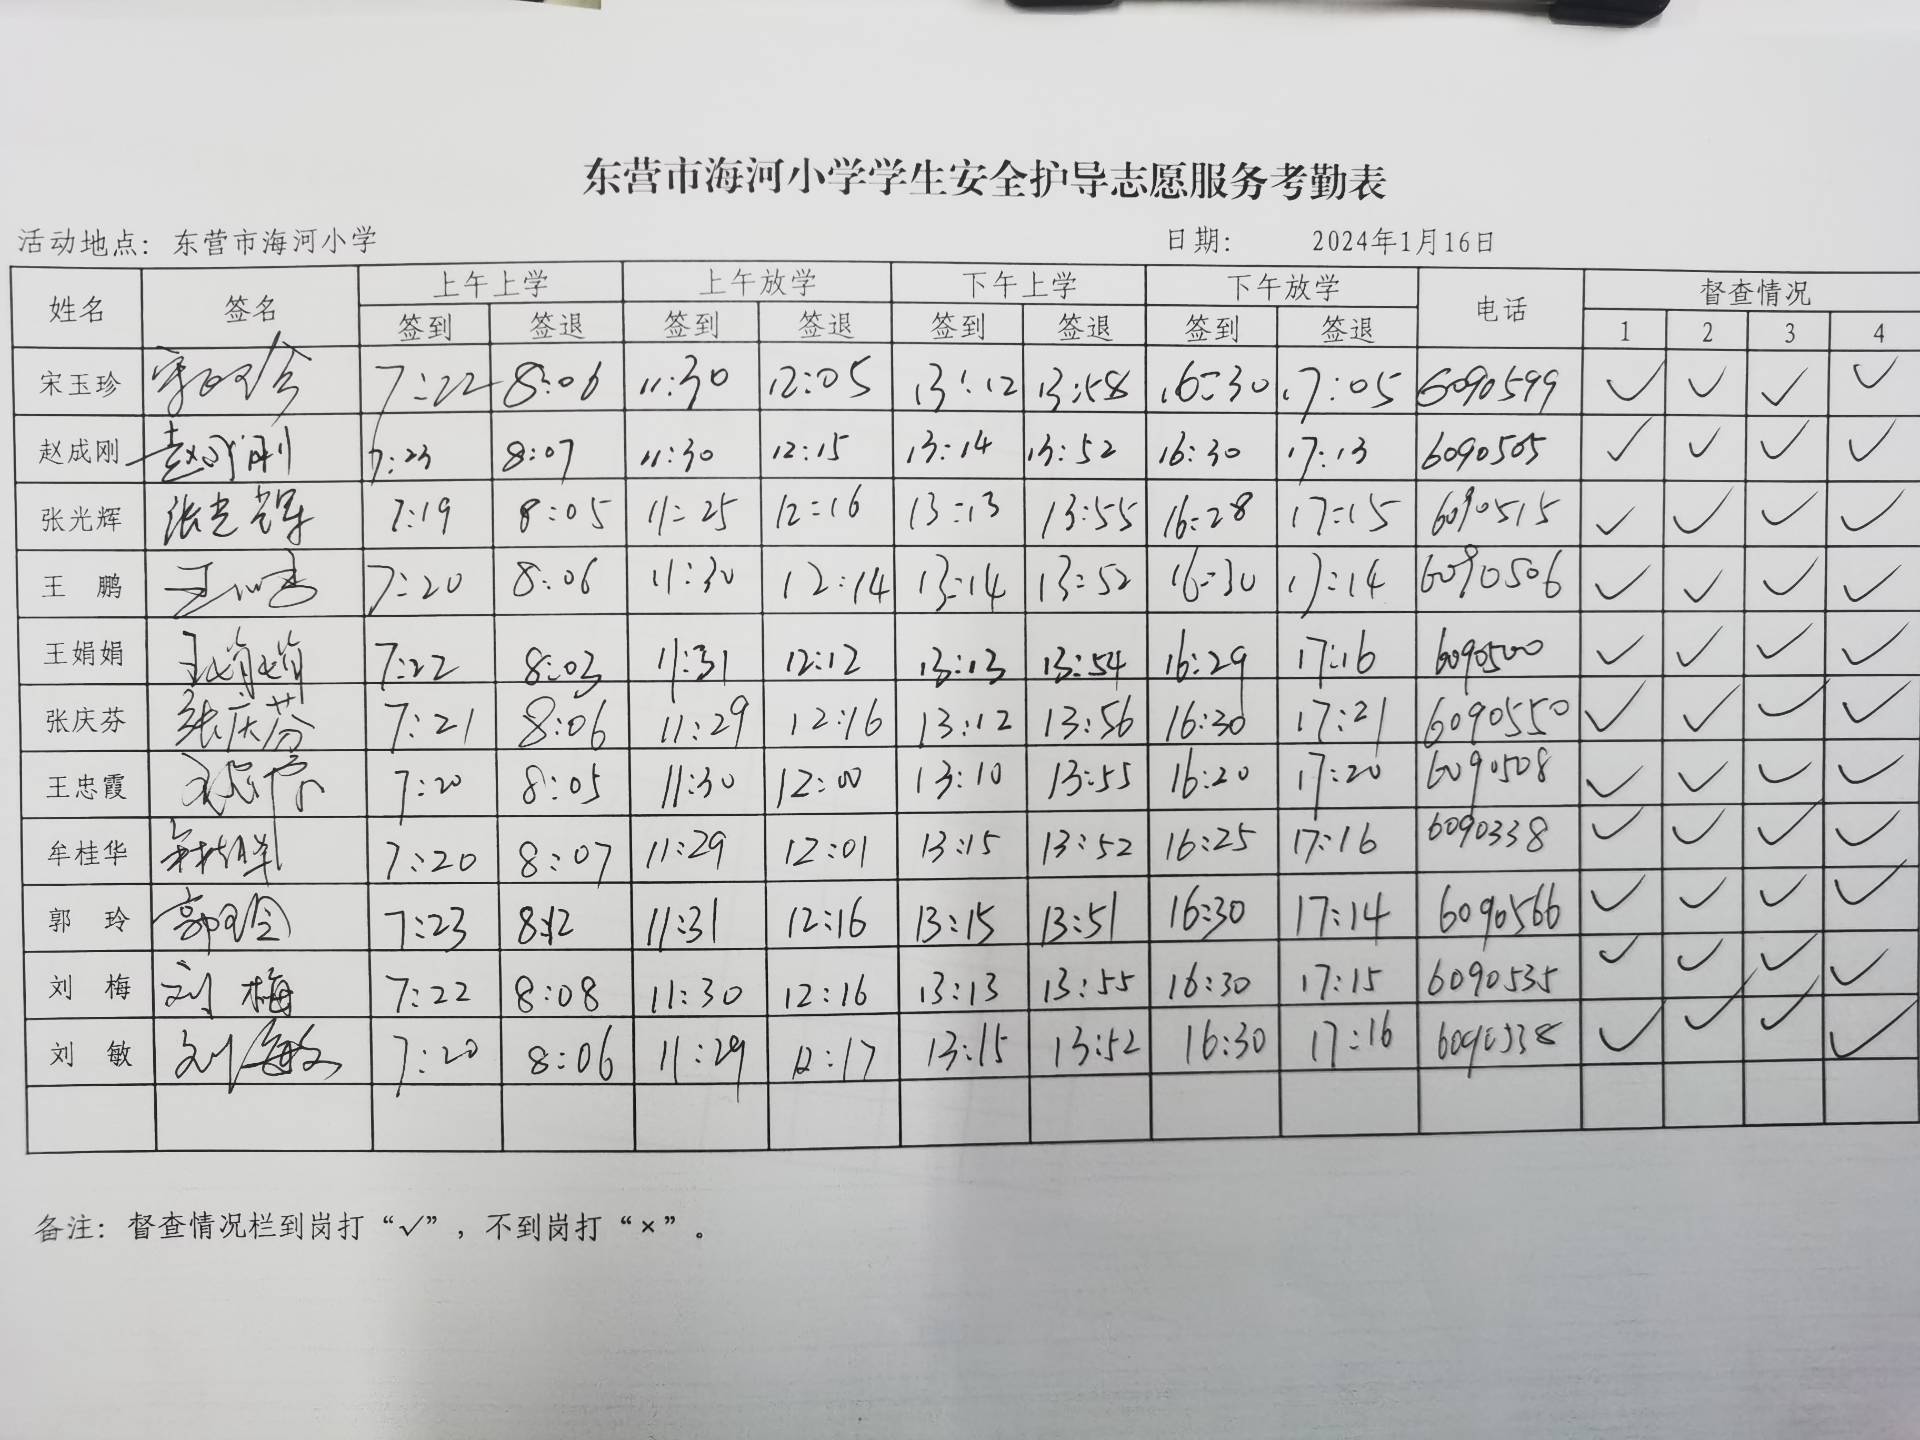 东营市海河小学学生安全护导志愿服务考勤表
活动地点：东营市海河小学 日期： 2024年1月16日
姓名 签名 上午上学 上午放学 下午上学 下午放学 电话 督查情况
签到 签退 签到 签退 签到 签退 签到 签退 1 2 3 4
宋玉珍 宋玉珍 7:22 8:06 11:30 12:05 13:12 13:58 16:30 17:05 6090599 ✓ ✓ ✓ ✓
赵成刚 赵成刚 7:23 8:07 11:30 12:15 13:14 13:52 16:30 17:13 6090505 ✓ ✓ ✓ ✓
张光辉 张光辉 7:19 8:05 11:25 12:16 13:13 13:55 16:28 17:15 6090515 ✓ ✓ ✓ ✓
王 鹏 王鹏 7:20 8:06 11:30 12:14 13:14 13:52 16:30 17:14 6090506 ✓ ✓ ✓ ✓
王娟娟 王娟娟 7:22 8:03 11:31 12:12 13:13 13:54 16:29 17:16 6090500 ✓ ✓ ✓ ✓
张庆芬 张庆芬 7:21 8:06 11:29 12:16 13:12 13:56 16:30 17:21 6090550 ✓ ✓ ✓ ✓
王忠霞 王忠霞 7:20 8:05 11:30 12:00 13:10 13:55 16:20 17:20 6090508 ✓ ✓ ✓ ✓
牟桂华 牟桂华 7:20 8:07 11:29 12:01 13:15 13:52 16:25 17:16 6090338 ✓ ✓ ✓ ✓
郭 玲 郭玲 7:23 8:12 11:31 12:16 13:15 13:51 16:30 17:14 6090566 ✓ ✓ ✓ ✓
刘 梅 刘梅 7:22 8:08 11:30 12:16 13:13 13:55 16:30 17:15 6090535 ✓ ✓ ✓ ✓
刘 敏 刘敏 7:20 8:06 11:29 12:17 13:15 13:52 16:30 17:16 6090538 ✓ ✓ ✓ ✓
备注：督查情况栏到岗打“√”，不到岗打“×”。